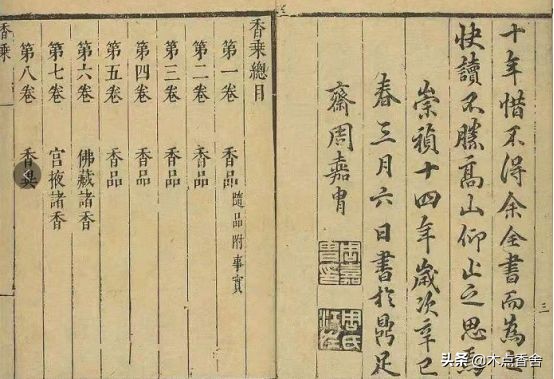 十年惜不得余全書而為
快讀不勝高山仰止之思焉
崇禎十四年歲次辛巳
春三月六日書於鼎足
齋周嘉冑
三
香乘總目
第一卷 香品 隨品附事實
第二卷 香品
第三卷 香品
第四卷 香品
第五卷 香品
第六卷 佛藏諸香
第七卷 宮掖諸香
第八卷 香
香乘
头条 @木点香舍